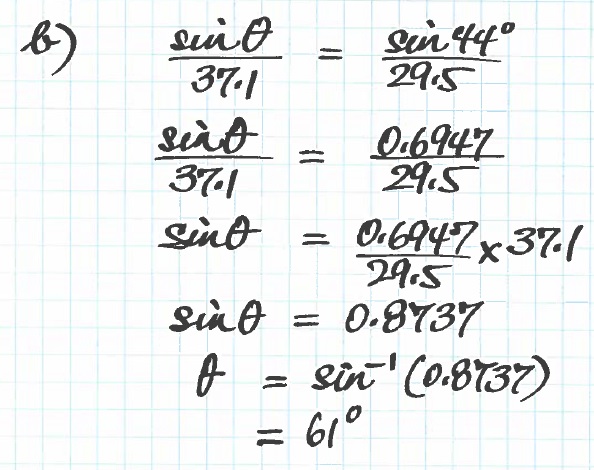 b) sinθ/37.1 = sin44°/29.5
sinθ/37.1 = 0.6947/29.5
sinθ = 0.6947/29.5 x 37.1
sinθ = 0.8737
θ = sin⁻¹(0.8737)
= 61°